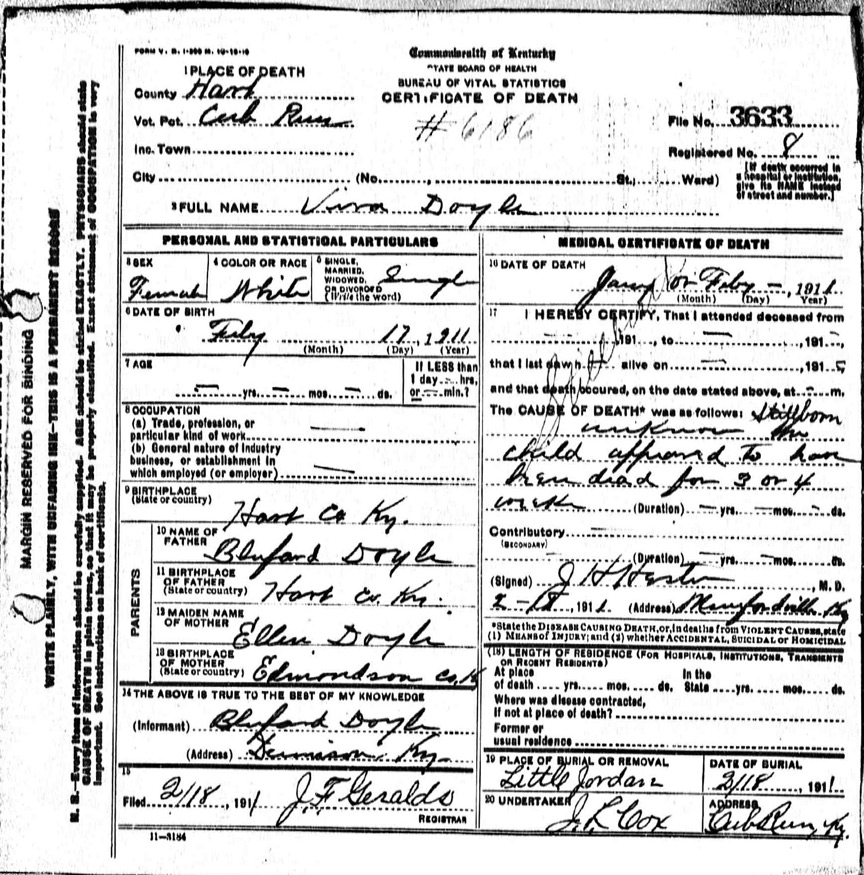 FORM V. S. 1-200 M. 10-15-10
Commonwealth of Kentucky
STATE BOARD OF HEALTH
BUREAU OF VITAL STATISTICS
CERTIFICATE OF DEATH
# 6186
1 PLACE OF DEATH
County Hart
Vot. Pct. Cub Run
Inc. Town
City (No. , St., Ward)
File No. 3633
Registered No. 8
[If death occurred in
a hospital or institution,
give its NAME instead
of street and number.]
2 FULL NAME Viva Doyle
PERSONAL AND STATISTICAL PARTICULARS
3 SEX
Female
4 COLOR OR RACE
White
5 SINGLE,
MARRIED,
WIDOWED,
OR DIVORCED
(Write the word)
Single
6 DATE OF BIRTH
Feby 17, 1911
(Month) (Day) (Year)
7 AGE
— yrs. — mos. — ds.
If LESS than
1 day — hrs.
or — min.?
8 OCCUPATION
(a) Trade, profession, or
particular kind of work —
(b) General nature of industry
business, or establishment in
which employed (or employer) —
9 BIRTHPLACE
(State or country)
Hart Co Ky.
PARENTS
10 NAME OF
FATHER
Bluford Doyle
11 BIRTHPLACE
OF FATHER
(State or country)
Hart Co. Ky.
12 MAIDEN NAME
OF MOTHER
Ellen Doyle
13 BIRTHPLACE
OF MOTHER
(State or country)
Edmondson Co. K
14 THE ABOVE IS TRUE TO THE BEST OF MY KNOWLEDGE
(Informant) Bluford Doyle
(Address) Dennison Ky.
15
Filed 2/18, 1911 J. F. Geralds
REGISTRAR
11—3184
MEDICAL CERTIFICATE OF DEATH
16 DATE OF DEATH
Jany or Feby —, 1911
(Month) (Day) Year)
17 I HEREBY CERTIFY, That I attended deceased from
— 191 , to — 191 ,
that I last saw h alive on — 191
and that death occured, on the date stated above, at — m.
The CAUSE OF DEATH* was as follows: Stillborn
unknow
child appeared to have
been died for 3 or 4
weeks (Duration) — yrs. — mos. — ds.
Contributory
(SECONDARY)
(Duration) — yrs. — mos. — ds.
(Signed) J H Hester M. D.
2-18, 1911 (Address) Munfordville Ky
*State the DISEASE CAUSING DEATH, or, in deaths from VIOLENT CAUSES, state
(1) MEANS OF INJURY; and (2) whether ACCIDENTAL, SUICIDAL or HOMICIDAL
(18) LENGTH OF RESIDENCE (FOR HOSPITALS, INSTITUTIONS, TRANSIENTS
OR RECENT RESIDENTS)
At place In the
of death yrs. mos. ds. State yrs. mos. ds.
Where was disease contracted,
If not at place of death?
Former or
usual residence
19 PLACE OF BURIAL OR REMOVAL
Little Jordan
DATE OF BURIAL
2/18, 1911
20 UNDERTAKER
J. L. Cox
ADDRESS
Cub Run, Ky.
MARGIN RESERVED FOR BINDING
WRITE PLAINLY, WITH UNFADING INK—THIS IS A PERMANENT RECORD
N. B.—Every item of information should be carefully supplied. AGE should be stated EXACTLY. PHYSICIANS should state
CAUSE OF DEATH in plain terms, so that it may be properly classified. Exact statement of OCCUPATION is very
important. See instructions on back of certificate.